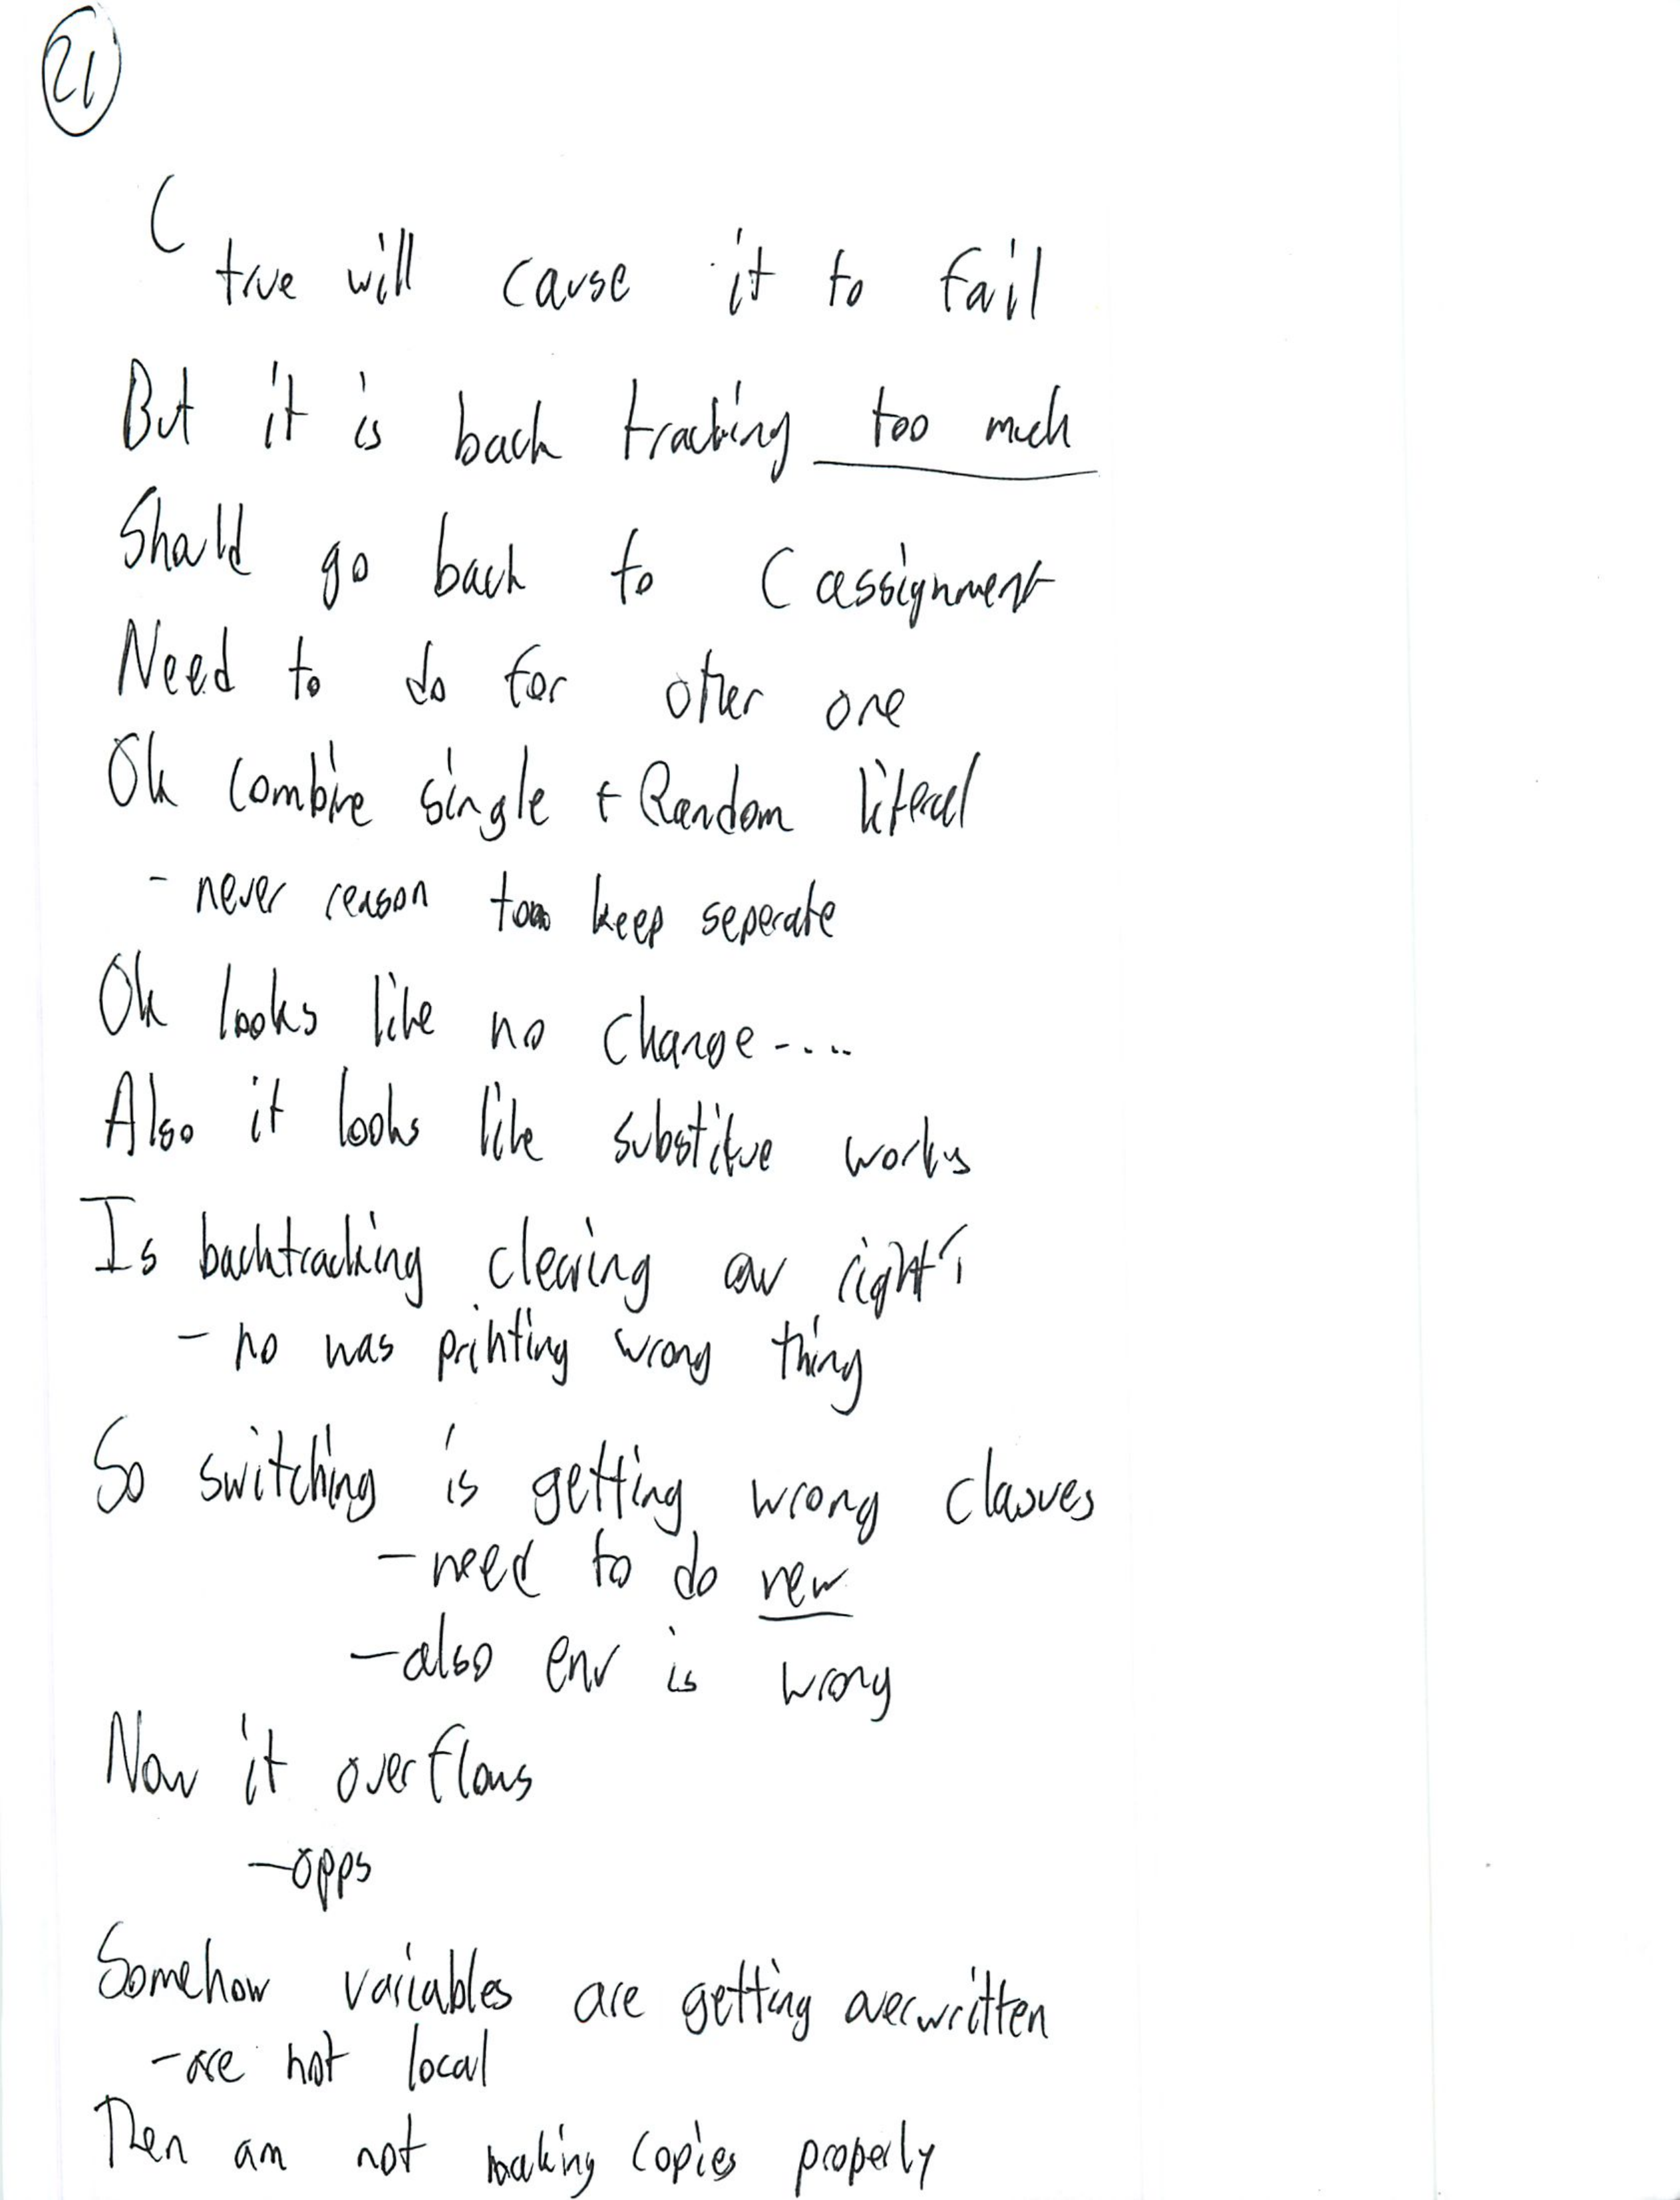 21
C
true will cause it to fail
But it is back tracking too much
Should go back to C assignment
Need to do for other one
Ok combine single + Random literal
- never reason too keep seperate
Ok looks like no change-....
Also it looks like substitue works
Is backtracking clearing our right?
- no was printing wrong thing
So switching is getting wrong clauses
- need to do new
- also env is wrong
Now it overflows
- opps
Somehow variables are getting overwritten
- are not local
Then am not making copies properly